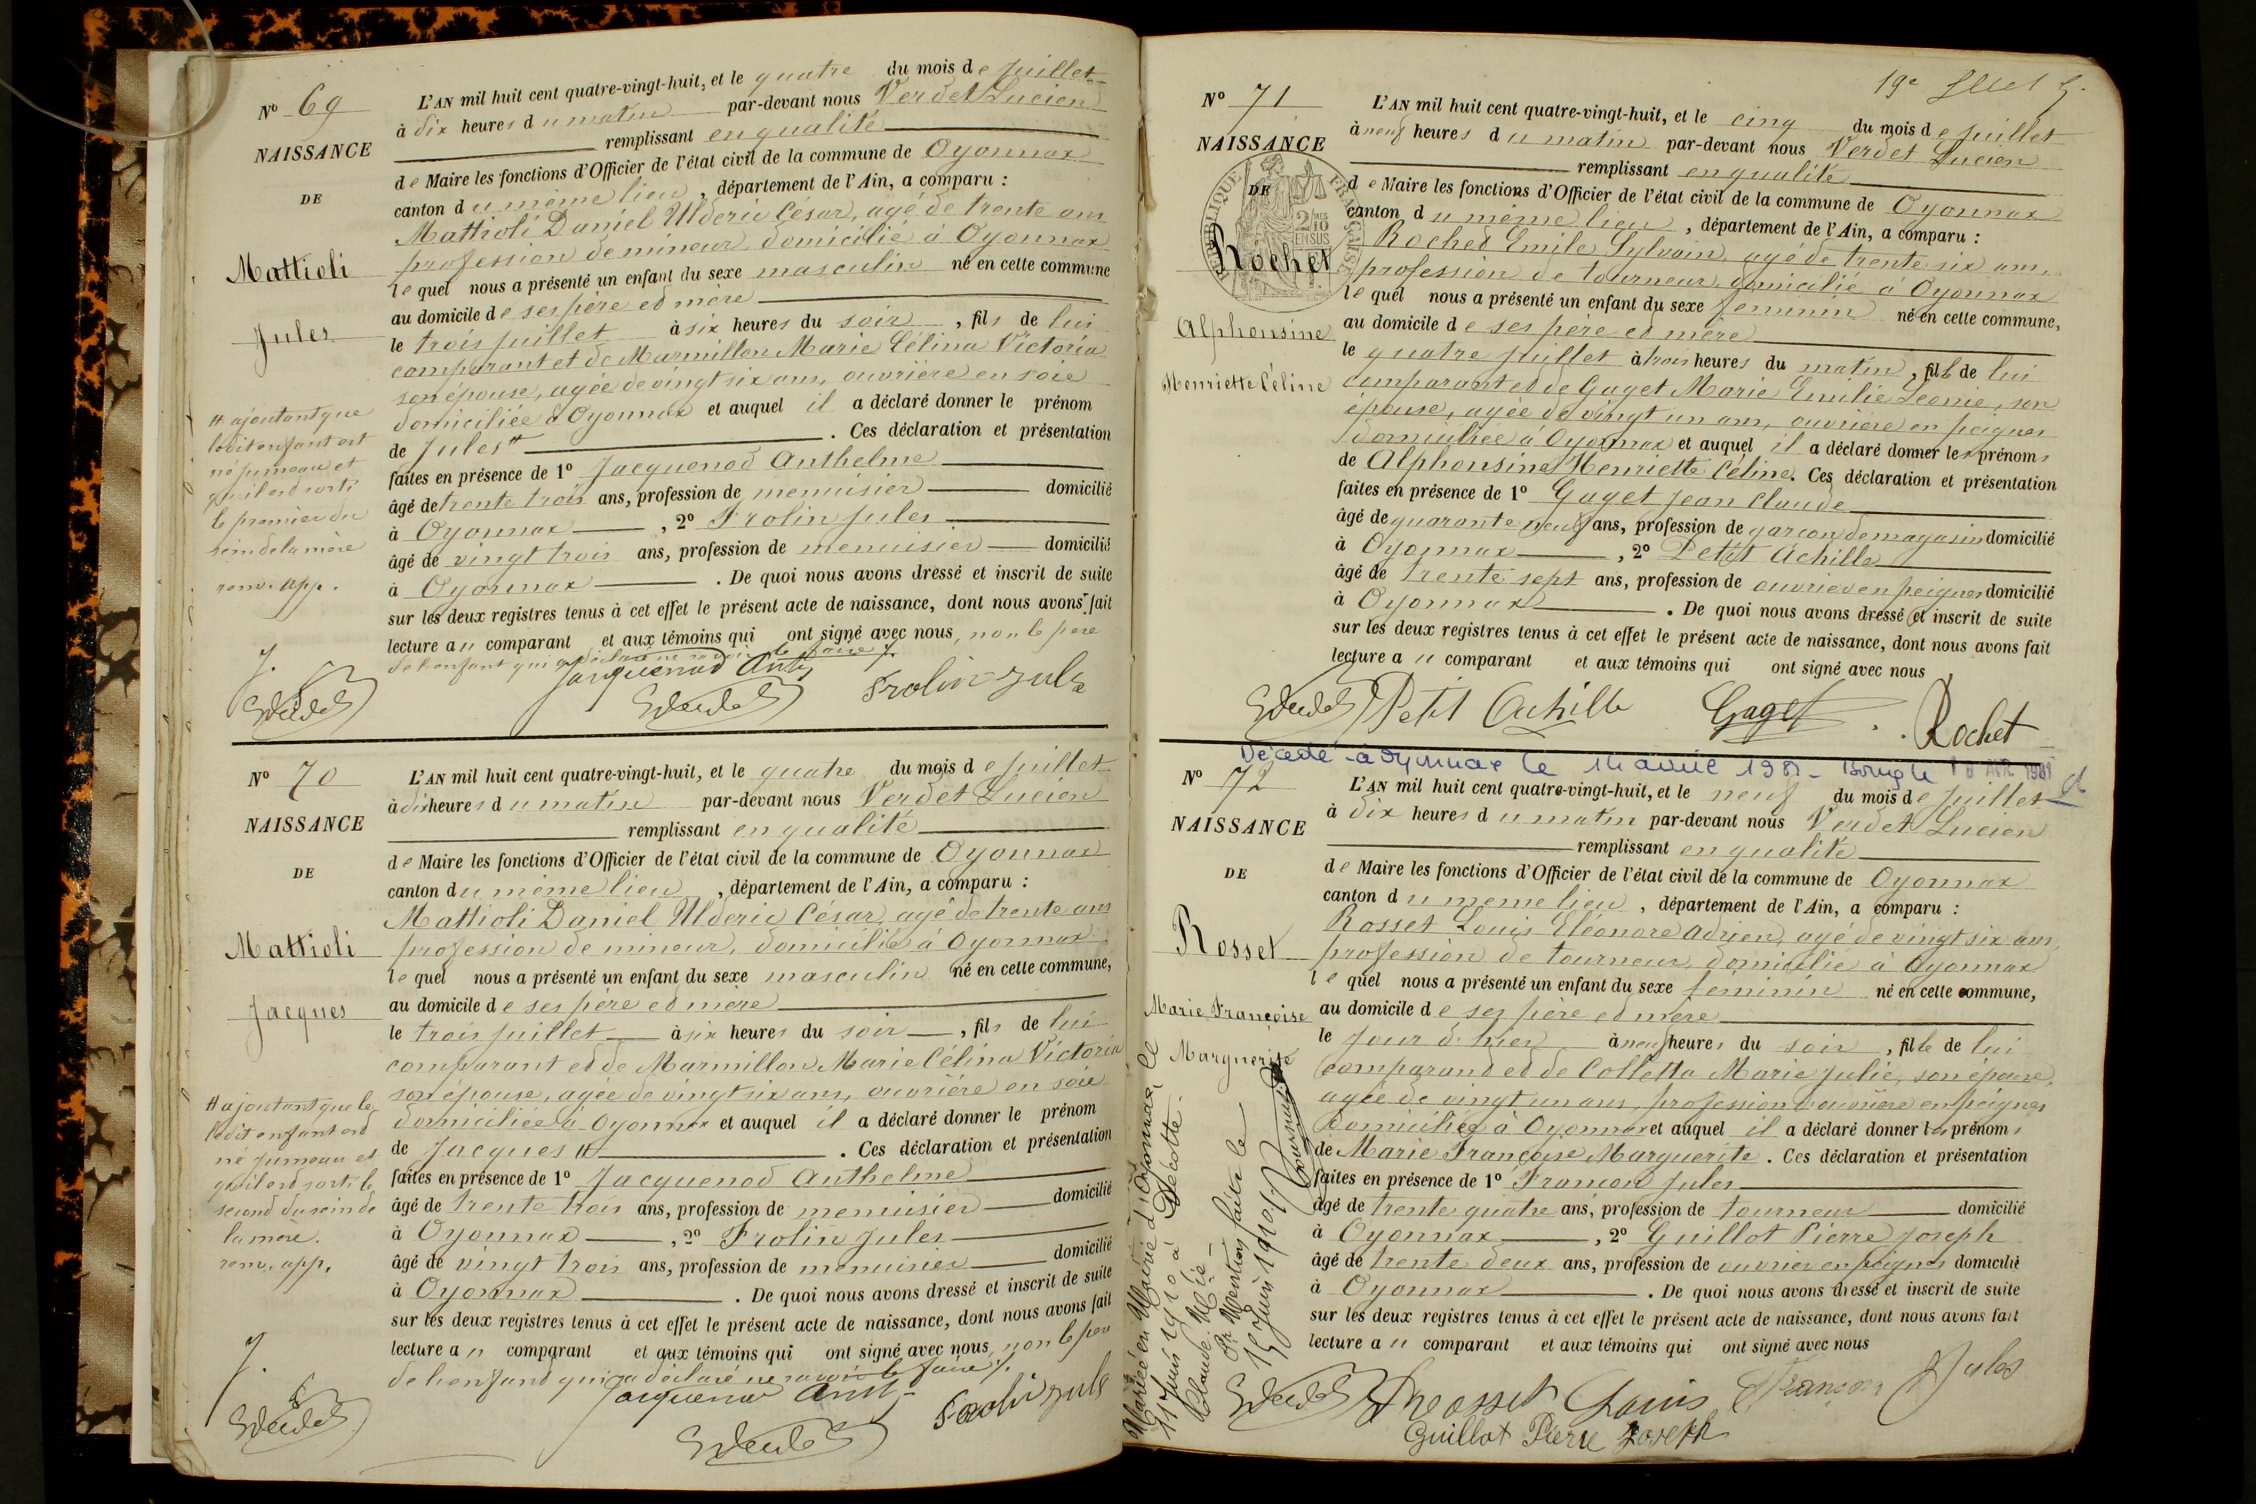 N° 69
NAISSANCE
DE
Mattioli
Jules
# ajoutant que
ledit enfant est
né jumeau et
qu'il est sorti
le premier du
sein de la mère
renv. app.
L'AN mil huit cent quatre-vingt-huit, et le quatre du mois de juillet
à dix heures du matin par-devant nous Verdet Lucien
remplissant en qualité
de Maire les fonctions d'Officier de l'état civil de la commune de Oyonnax
canton du même lieu, département de l'Ain, a comparu :
Mattioli Daniel Ulderic César, agé de trente ans
profession de mineur domicilié à Oyonnax
lequel nous a présenté un enfant du sexe masculin né en cette commune
au domicile de ses père et mère
le trois juillet à six heures du soir, fils de lui
comparant et de Marmillon Marie Célina Victoria
son épouse, agée de vingt six ans, ouvrière en soie
domiciliée à Oyonnax et auquel il a déclaré donner le prénom
de Jules # . Ces déclaration et présentation
faites en présence de 1° Jacquenod Anthelme
âgé de trente trois ans, profession de menuisier domicilié
à Oyonnax, 2° Frolin Jules
âgé de vingt trois ans, profession de menuisier domicilié
à Oyonnax. De quoi nous avons dressé et inscrit de suite
sur les deux registres tenus à cet effet le présent acte de naissance, dont nous avons fait
lecture au comparant et aux témoins qui ont signé avec nous, non le père
de l'enfant qui a déclaré ne savoir le faire
Jacquenod Anth
Frolin Jules
N° 70
NAISSANCE
DE
Mattioli
Jacques
# ajoutant que le
ledit enfant est
né jumeau et
qu'il est sorti le
second du sein de
la mère.
renv. app.
L'AN mil huit cent quatre-vingt-huit, et le quatre du mois de juillet
à dix heures du matin par-devant nous Verdet Lucien
remplissant en qualité
de Maire les fonctions d'Officier de l'état civil de la commune de Oyonnax
canton du même lieu, département de l'Ain, a comparu :
Mattioli Daniel Ulderic César, agé de trente ans
profession de mineur, domicilié à Oyonnax
lequel nous a présenté un enfant du sexe masculin né en cette commune,
au domicile de ses père et mère
le trois juillet à six heures du soir, fils de lui
comparant et de Marmillon Marie Célina Victoria
son épouse, agée de vingt six ans, ouvrière en soie
domiciliée à Oyonnax et auquel il a déclaré donner le prénom
de Jacques # . Ces déclaration et présentation
faites en présence de 1° Jacquenod Anthelme
âgé de trente trois ans, profession de menuisier domicilié
à Oyonnax, 2° Frolin Jules
âgé de vingt trois ans, profession de menuisier domicilié
à Oyonnax. De quoi nous avons dressé et inscrit de suite
sur les deux registres tenus à cet effet le présent acte de naissance, dont nous avons fait
lecture au comparant et aux témoins qui ont signé avec nous, non le père
de l'enfant qui a déclaré ne savoir le faire
Jacquenod Anth
Frolin Jules
19e
N° 71
NAISSANCE
DE
Rochet
Alphonsine
Henriette Céline
RÉPUBLIQUE FRANÇAISE
2/10 EN SUS
L'AN mil huit cent quatre-vingt-huit, et le cinq du mois de juillet
à neuf heures du matin par-devant nous Verdet Lucien
remplissant en qualité
de Maire les fonctions d'Officier de l'état civil de la commune de Oyonnax
canton du même lieu, département de l'Ain, a comparu :
Rochet Emile Sylvain, agé de trente six ans,
profession de tourneur, domicilié à Oyonnax
lequel nous a présenté un enfant du sexe féminin né en cette commune,
au domicile de ses père et mère
le quatre juillet à trois heures du matin, fille de lui
comparant et de Gaget Marie Emilie Léonie, son
épouse, agée de vingt un ans, ouvrière en peignes
domiciliée à Oyonnax et auquel il a déclaré donner les prénoms
de Alphonsine Henriette Céline. Ces déclaration et présentation
faites en présence de 1° Gaget Jean Claude
âgé de quarante neuf ans, profession de garçon de magasin domicilié
à Oyonnax, 2° Petit Achille
âgé de trente sept ans, profession de ouvrier en peignes domicilié
à Oyonnax. De quoi nous avons dressé et inscrit de suite
sur les deux registres tenus à cet effet le présent acte de naissance, dont nous avons fait
lecture au comparant et aux témoins qui ont signé avec nous
Petit Achille Gaget Rochet
Décédée à Oyonnax le
N° 72
NAISSANCE
DE
Rosset
Marie Françoise
Marguerite
Mariée en Mairie d'Oyonnax le
11 Juin 1910 à
Claude
Mention faite le
15 Juin 1910
L'AN mil huit cent quatre-vingt-huit, et le neuf du mois de juillet
à dix heures du matin par-devant nous Verdet Lucien
remplissant en qualité
de Maire les fonctions d'Officier de l'état civil de la commune de Oyonnax
canton du même lieu, département de l'Ain, a comparu :
Rosset Louis Eléonore Adrien, agé de vingt six ans,
profession de tourneur, domicilié à Oyonnax
lequel nous a présenté un enfant du sexe féminin né en cette commune,
au domicile de ses père et mère
le jour d'hier à neuf heures du soir, fille de lui
comparant et de Colletta Marie Julie, son épouse,
agée de vingt un ans, profession d'ouvrière en peignes
domiciliée à Oyonnax et auquel il a déclaré donner les prénoms
de Marie Françoise Marguerite. Ces déclaration et présentation
faites en présence de 1° Françon Jules
âgé de trente quatre ans, profession de tourneur domicilié
à Oyonnax, 2° Guillot Pierre Joseph
âgé de trente deux ans, profession de ouvrier en peignes domicilié
à Oyonnax. De quoi nous avons dressé et inscrit de suite
sur les deux registres tenus à cet effet le présent acte de naissance, dont nous avons fait
lecture au comparant et aux témoins qui ont signé avec nous
Rosset Louis Françon Jules
Guillot Pierre Joseph